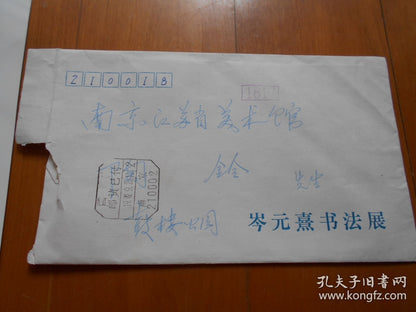 210018
南京江苏省美术馆
先生
鼓楼公园
210002
岑元熹书法展
孔夫子旧书网
www.kongfz.com